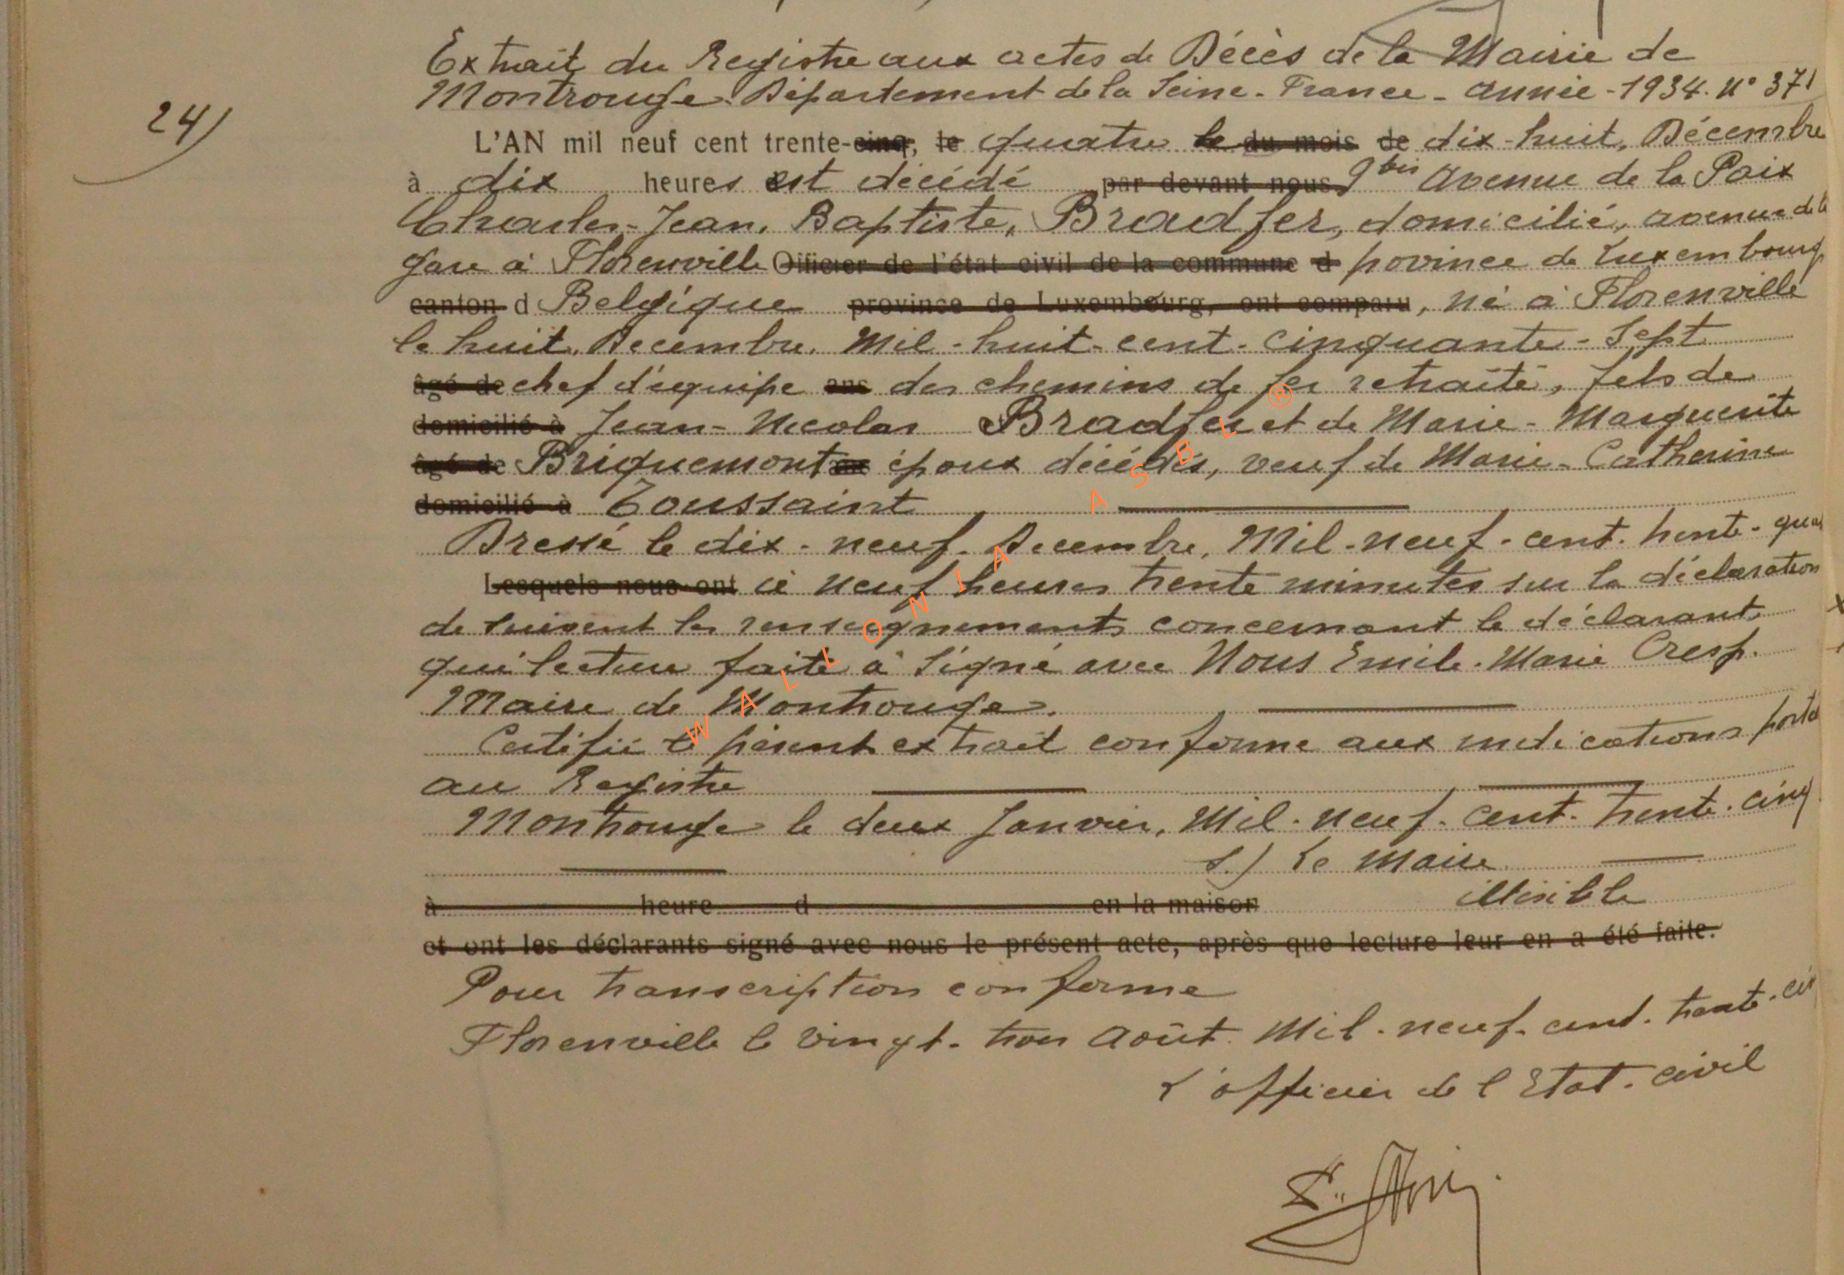 Extrait du Registre aux actes de Décès de la Mairie de
24)
Montrouge. Département de la Seine - France - année - 1934. N° 371
L'AN mil neuf cent trente-cinq, le quatre le du mois de dix-huit, Décembre
à dix heures est décédé par devant nous 9bis Avenue de la Paix
Charles-Jean, Baptiste, Bradfer, domicilié, avenue de la
gare à Florenville Officier de l'état civil de la commune d povince de Luxembourg
canton d Belgique province de Luxembourg, ont comparu, né à Florenville
le huit, Décembre, Mil-huit-cent-cinquante-Sept
âgé de chef d'équipe ans des chemins de fer retraité, fils de
domicilié à Jean-Nicolas Bradfer et de Marie-Marguerite
âgé de Briquemont ans époux décédés, veuf de Marie-Catherine
domicilié à Toussaint
Dressé le dix-neuf. Décembre, Mil-neuf-cent-trente-qua
Lesquels nous ont à neuf heures trente minutes sur la déclaration
de suivent les renseignements concernant le déclarant
qui lecture faite à signé avec Nous Emile-Marie Cresp.
Maire de Montrouge.
Certifié le présent extrait conforme aux indications porté
au Registre
Montrouge le deux Janvier, Mil-neuf-cent-trente-cinq
s.) Le Maire
illisible
à heure d en la maison
et ont les déclarants signé avec nous le présent acte, après que lecture leur en a été faite.
Pour transcription conforme
Florenville le vingt-trois Août Mil-neuf-cent-trente-ci
L'officier de l'Etat-civil
WALLONIA ASBL ®